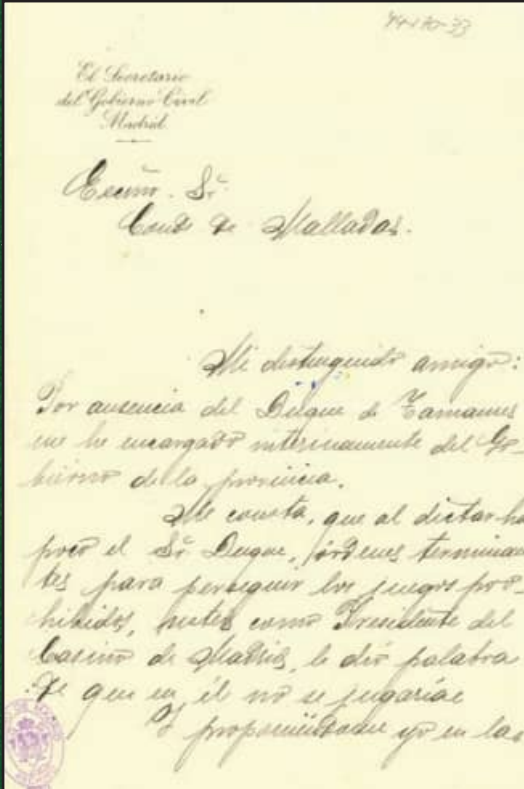 El Secretario
del Gobierno Civil
Madrid
Excmo. Sr.
Conde de Malladas.
Mi distinguido amigo:
Por ausencia del Duque de Tamames
me he encargado interinamente del Go-
bierno de la provincia.
Me consta, que al dictar ha
poco el Sr. Duque, órdenes terminan
tes para perseguir los juegos pro-
hibidos, usted como Presidente del
Casino de Madrid, le dió palabra
de que en él no se jugaría
Y proponiéndome yo en las